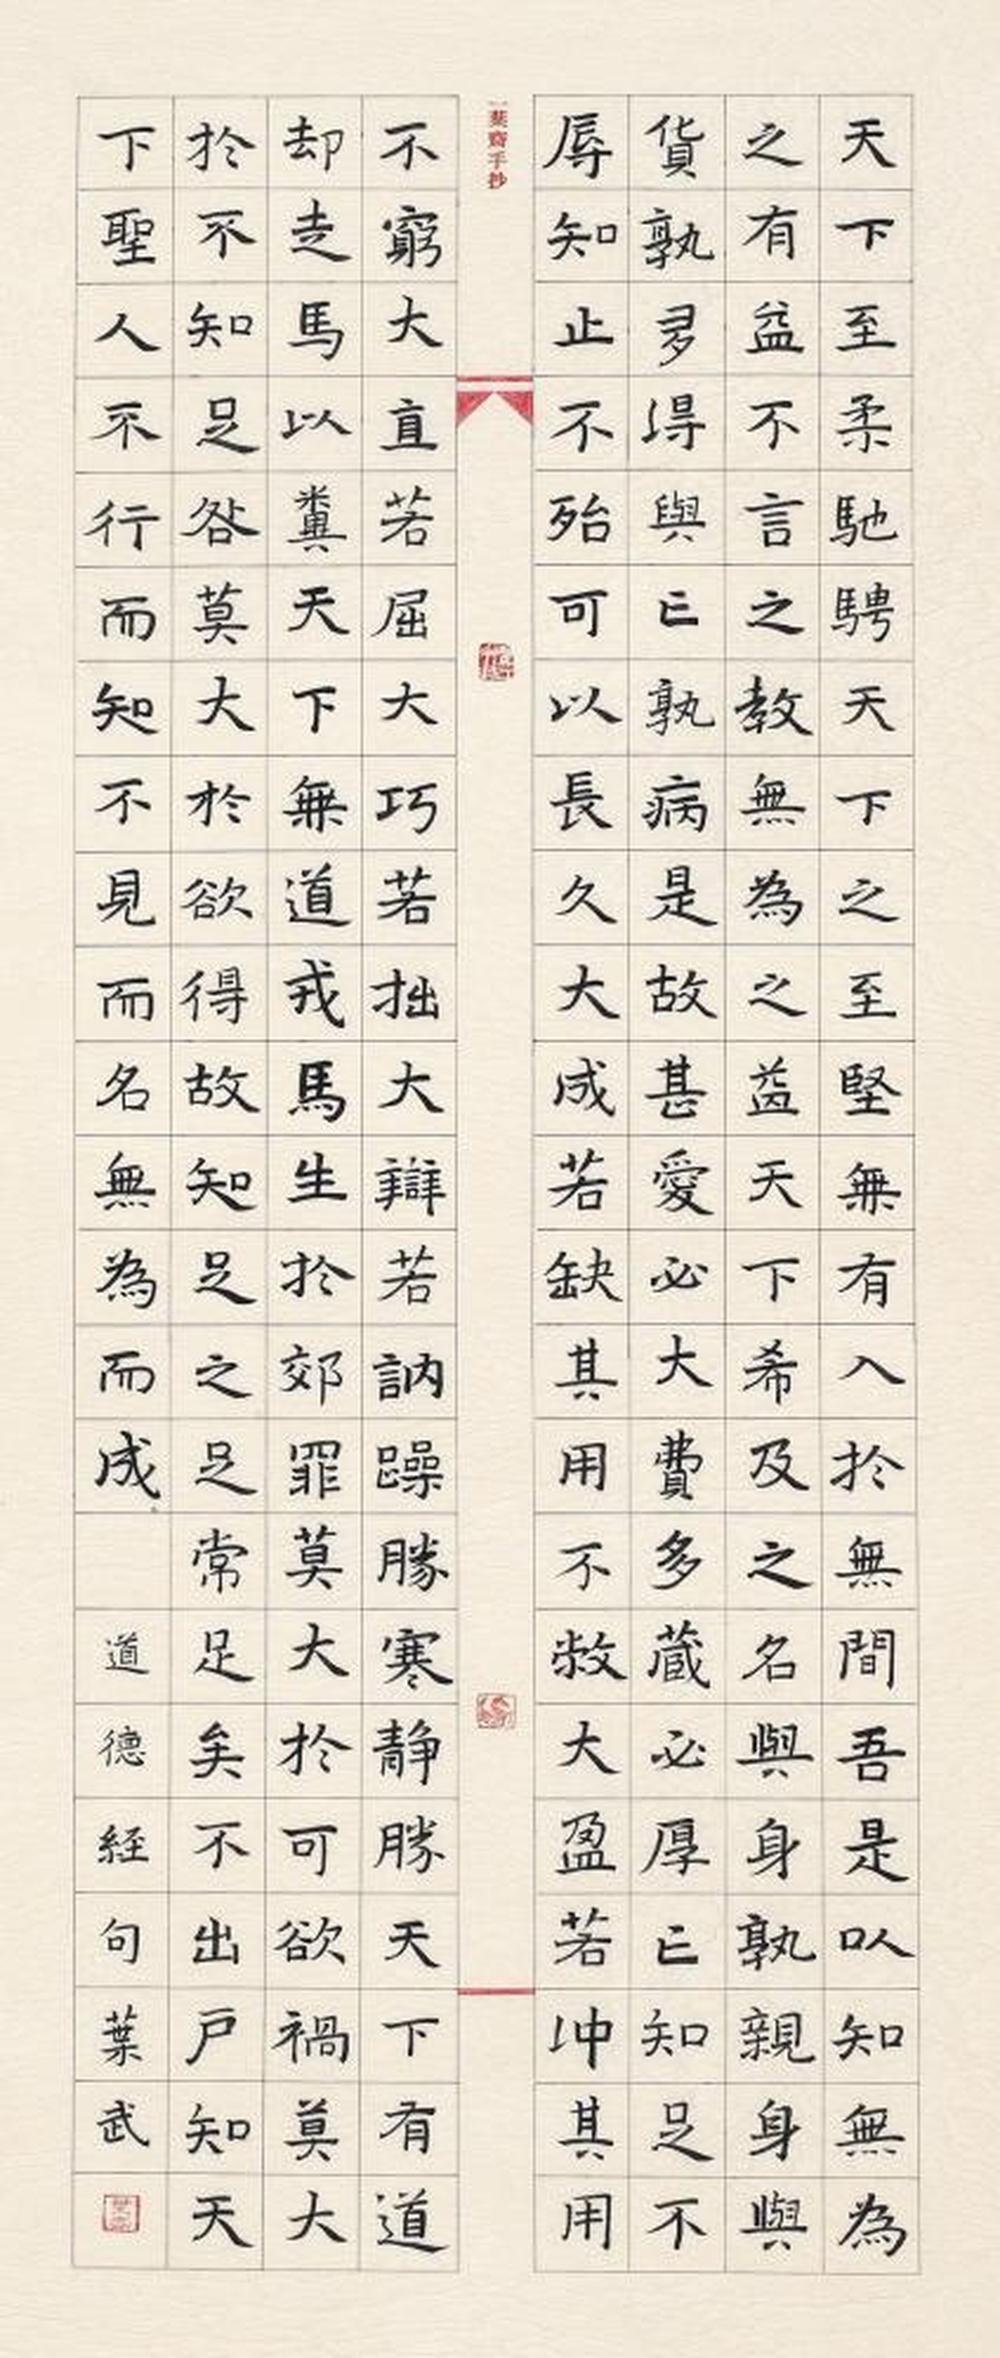 天下至柔馳騁天下之至堅無有入於無間吾是以知無為
之有益不言之教無為之益天下希及之名與身孰親身與
貨孰多得與亡孰病是故甚愛必大費多藏必厚亡知足不
辱知止不殆可以長久大成若缺其用不敝大盈若冲其用
一葉齋手抄
不窮大直若屈大巧若拙大辯若訥躁勝寒静勝天下有道
却走馬以糞天下無道戎馬生於郊罪莫大於可欲禍莫大
於不知足咎莫大於欲得故知足之足常足矣不出戶知天
下聖人不行而知不見而名無為而成
道德経句葉武